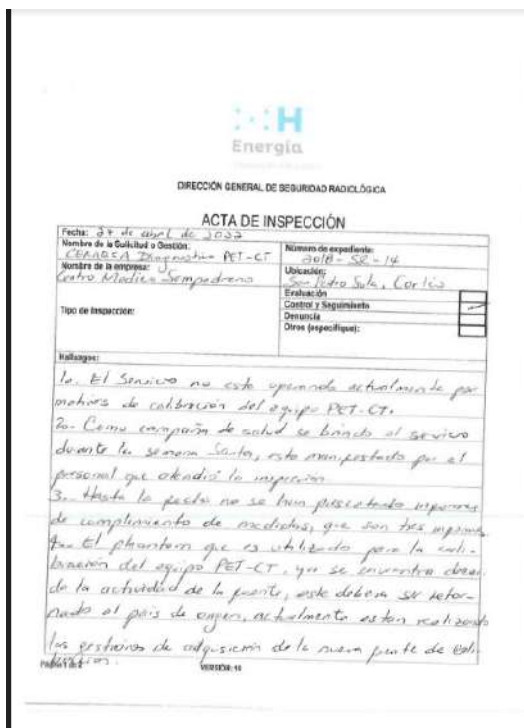 H
Energía
DIRECCIÓN GENERAL DE SEGURIDAD RADIOLÓGICA
ACTA DE INSPECCIÓN
Fecha: 27 de abril de 2022
Nombre de la Solicitud o Gestión:
Diagnostico PET-CT
Número de expediente:
2018-SR-14
Nombre de la empresa:
Centro Medico Sampedrano
Ubicación:
San Pedro Sula, Cortés
Tipo de Inspección:
Evaluación
Control y Seguimiento
Denuncia
Otros (especifique):
Hallazgos:
1o. El Servicio no esta operando actualmente por
motivos de calibración del equipo PET-CT.
2o- Como campaña de salud se brindo el servicio
durante la semana Santa, esto manifestado por el
personal que atendió la inspección
3.- Hasta la fecha no se han presentado informes
de cumplimiento de medidas, que son tres informes
4.- El phantom que es utilizado para la cali-
bración del equipo PET-CT, ya se encuentra
de la actividad de la fuente, este debera ser retor-
nado al pais de origen, actualmente estan realizando
las gestiones de adquisición de la nueva fuente de cali-
bración.
Página 1 de 2
VERSIÓN: 10